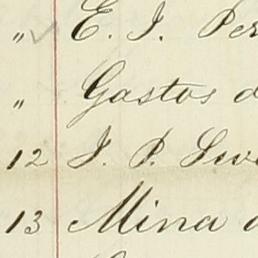 " E. J. Per
" Gastos d
12 J. P. Swa
13 Mina d